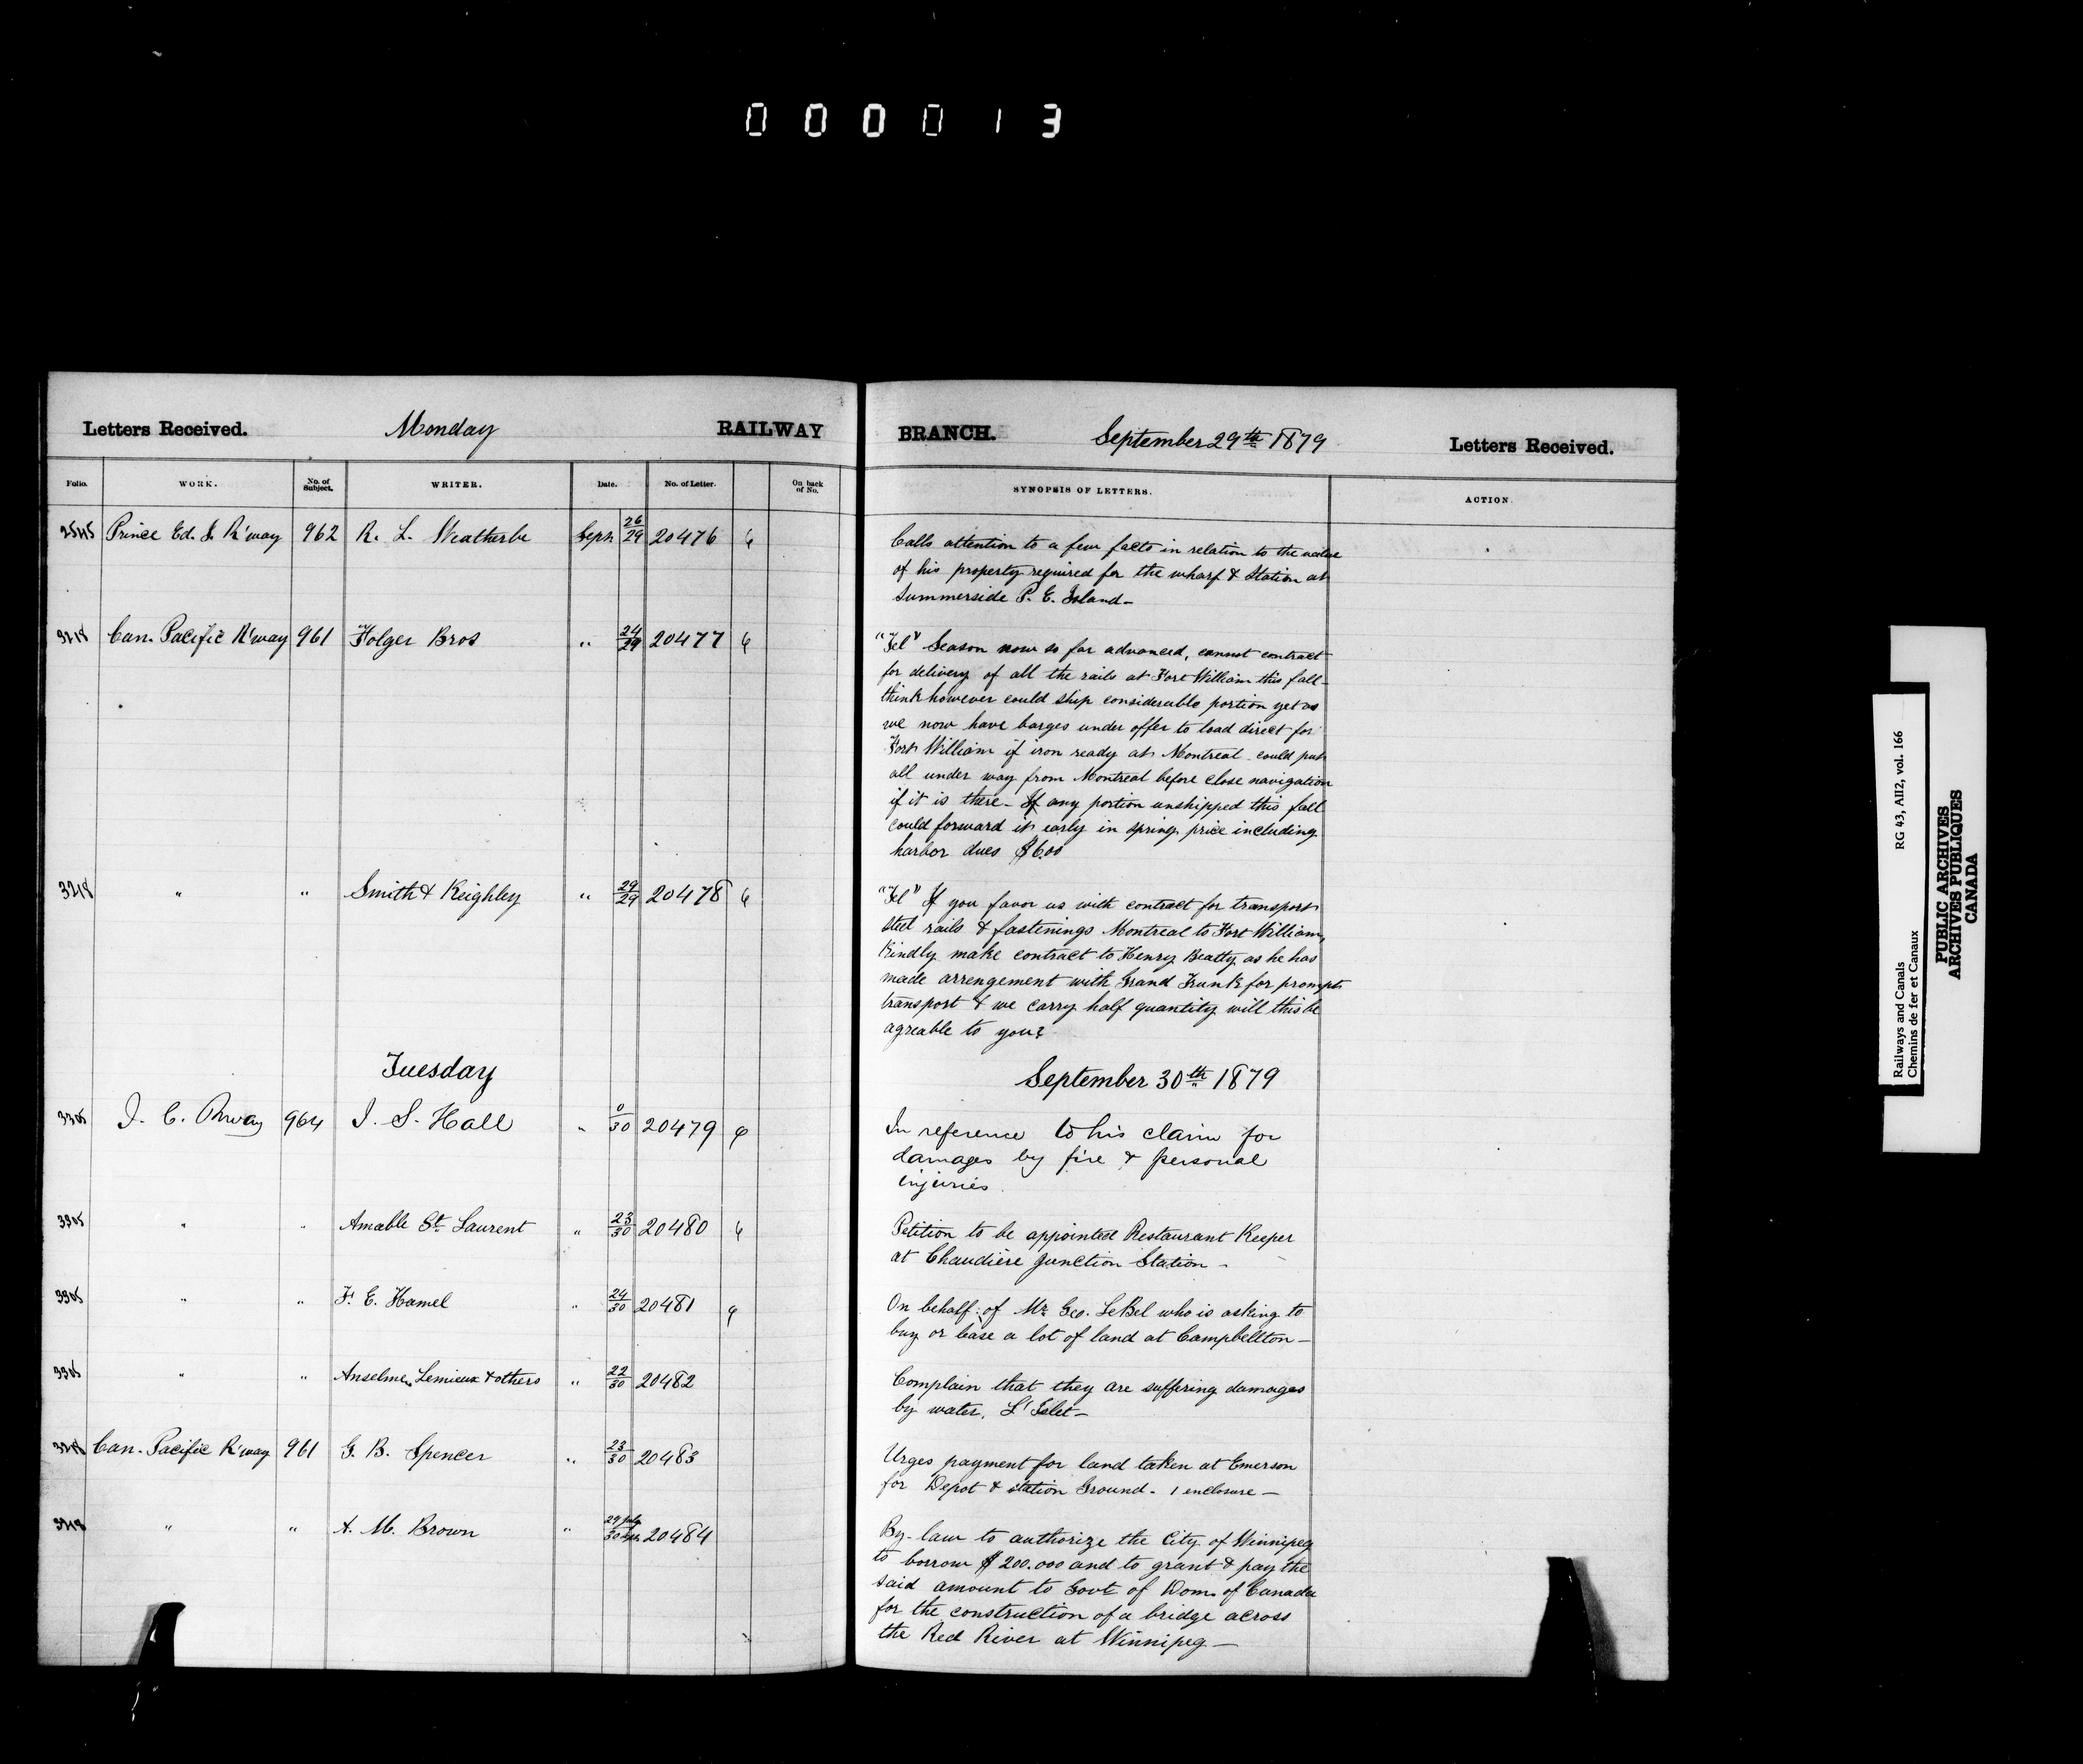 000013
Letters Received. Monday RAILWAY BRANCH. September 29th 1879 Letters Received.
Folio. WORK. No. of Subject. WRITER. Date. No. of Letter. On back of No. SYNOPSIS OF LETTERS. ACTION
2545 Prince Ed. I. R'way 962 R. L. Weatherbe Sept. 26/29 20476
Calls attention to a few facts in relation to the value
of his property required for the wharf & Station at
Summerside P. E. Island-
3218 Can. Pacific R'way 961 Folger Bros " 24/29 20477
"Tel" Season now so far advanced, cannot contract
for delivery of all the rails at Fort William this fall-
think however could ship considerable portion yet as
we now have barges under offer to load direct for
Fort William if iron ready at Montreal could put
all under way from Montreal before close navigation
if it is there- If any portion unshipped this fall
could forward it early in spring price including
harbor dues $6.00
3218 " " Smith & Keighley " 29/29 20478
"Tel" If you favor us with contract for transport
steel rails & fastenings Montreal to Fort William,
Kindly make contract to Henry Beatty as he has
made arrengement with Grand Trunk for prompt
transport & we carry half quantity will this be
agreable to you?
Tuesday September 30th 1879
3305 I. C. Rway 964 I. S. Hall " 0/30 20479
In reference to his claim for
damages by fire & personal
injuries.
3305 " " Amable St. Laurent " 23/30 20480
Petition to be appointed Restaurant Keeper
at Chaudière Junction Station -
3305 " " F. E. Hamel " 24/30 20481
On behalf of Mr. Geo. LeBel who is asking to
buy or lease a lot of land at Campbellton-
3305 " " Anselme Lemieux & others " 22/30 20482
Complain that they are suffering damages
by water, L'Islet-
3218 Can. Pacific R'way 961 G. B. Spencer " 23/30 20483
Urges payment for land taken at Emerson
for Depot & station Ground. 1 enclosure-
3218 " " A. M. Brown " 20484
By-law to authorize the City of Winnipeg
to borrow $200.000 and to grant & pay the
said amount to Govt of Dom. of Canada
for the construction of a bridge across
the Red River at Winnipeg-
Railways and Canals RG 43, AII2, vol. 166
Chemins de fer et Canaux
PUBLIC ARCHIVES
ARCHIVES PUBLIQUES
CANADA